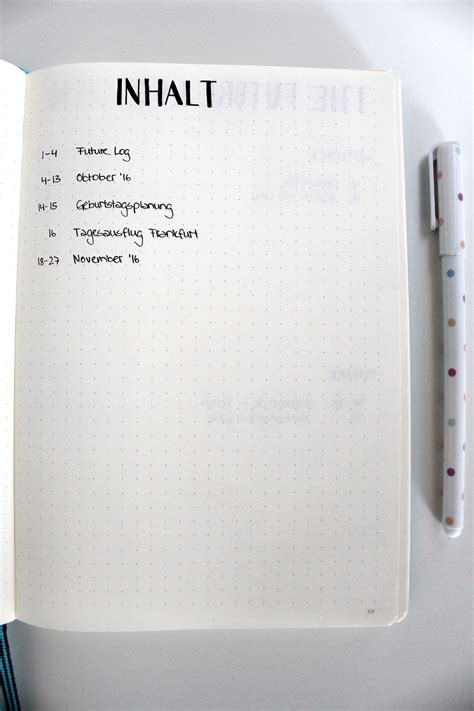 INHALT
1-4 Future Log
4-13 Oktober '16
14-15 Geburtstagsplanung
16 Tagesausflug Frankfurt
18-27 November '16
39